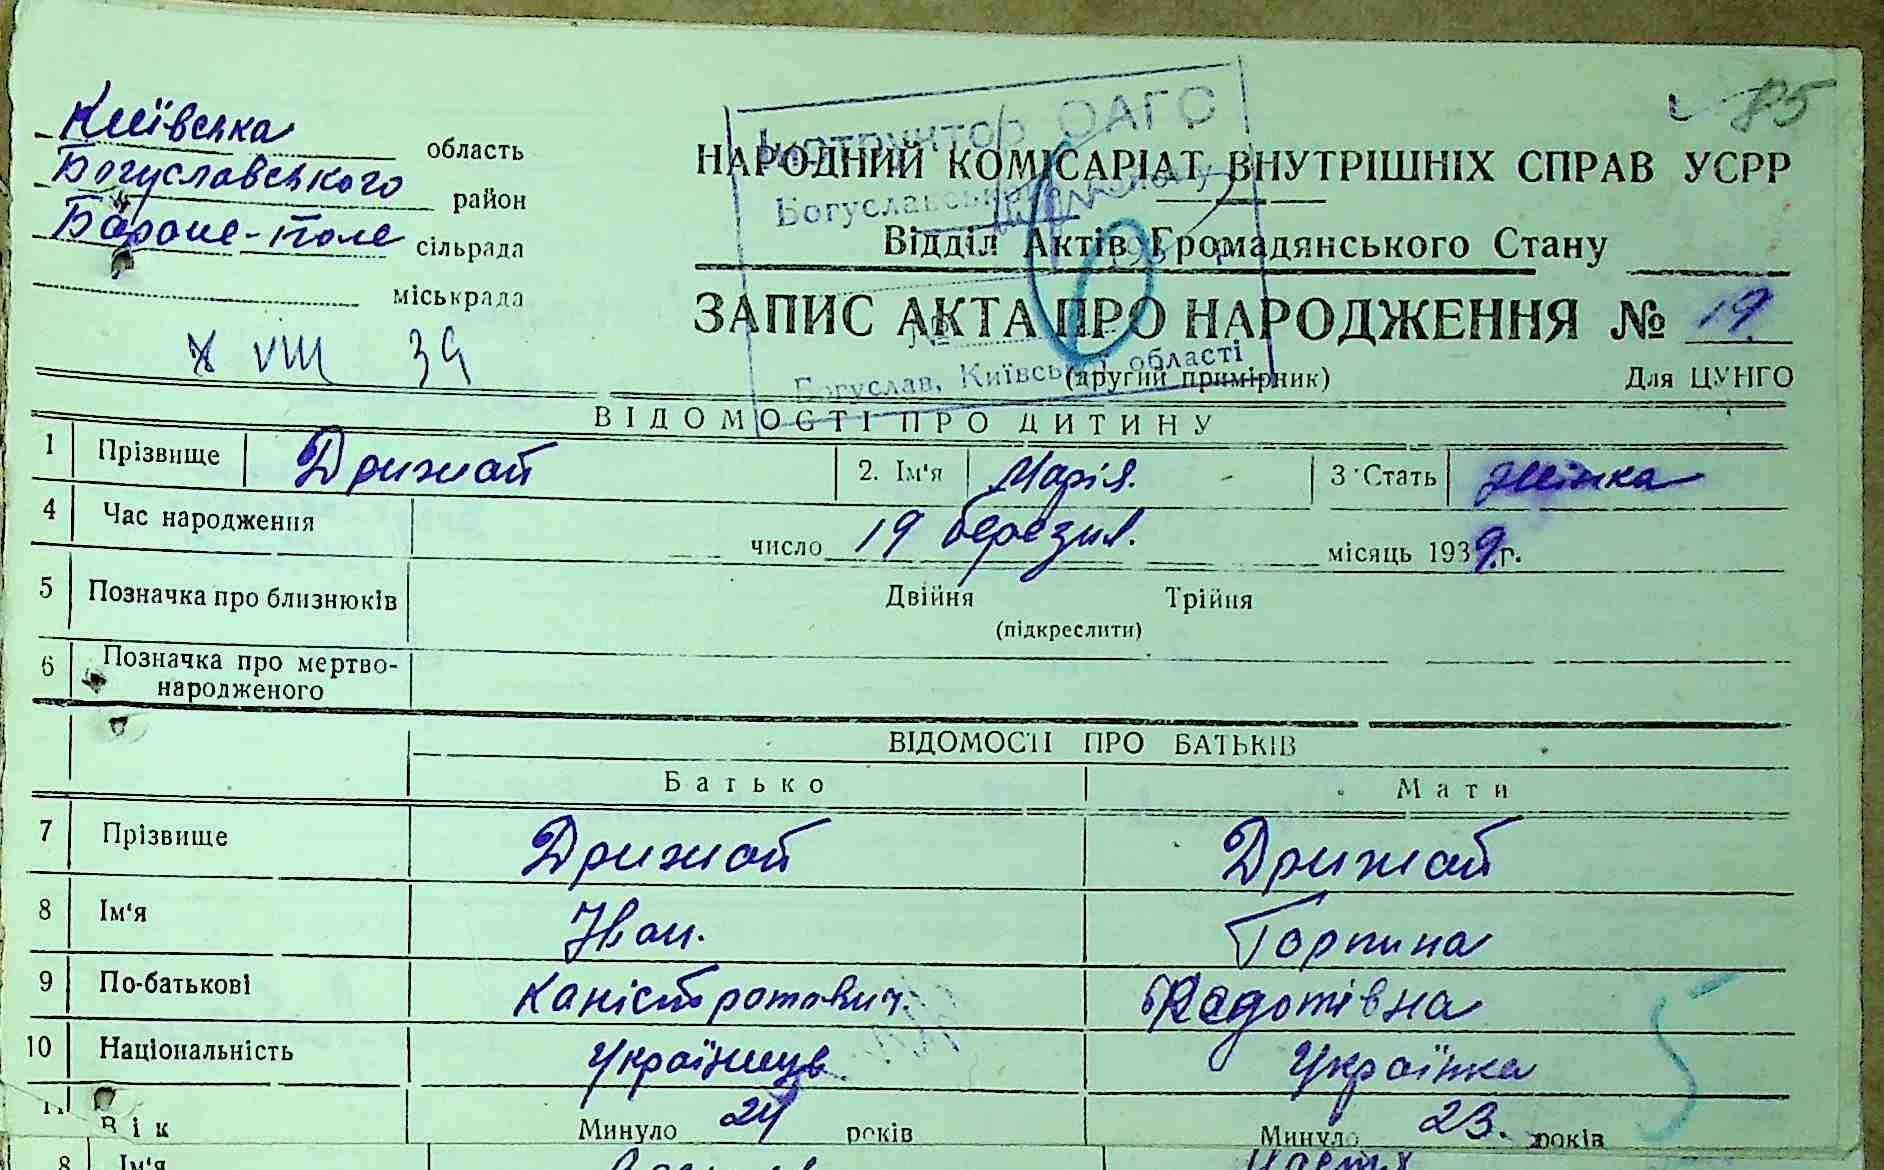 Київська область
Богуславського район
Бране-Поле сільрада
міськрада
X VIII 39
85
Інструктор ОАГС
Богуславськ
№
Богуслав, Київської області
НАРОДНИЙ КОМІСАРІАТ ВНУТРІШНІХ СПРАВ УСРР
Відділ Актів Громадянського Стану
ЗАПИС АКТА ПРО НАРОДЖЕННЯ № 19
(другий примірник) Для ЦУНГО
ВІДОМОСТІ ПРО ДИТИНУ
1 Прізвище Дрижат 2. Ім'я Марія. 3 Стать жінка
4 Час народження число 19 березня. місяць 1939 г.
5 Позначка про близнюків Двійня Трійня
(підкреслити)
6 Позначка про мертво-
народженого
ВІДОМОСТІ ПРО БАТЬКІВ
Батько Мати
7 Прізвище Дрижат Дрижат
8 Ім'я Іван. Горпина
9 По-батькові Каністратович. Федотівна
10 Національність Українець Українка
11 Вік Минуло 24 років Минуло 23. років
8 Ім'я
5